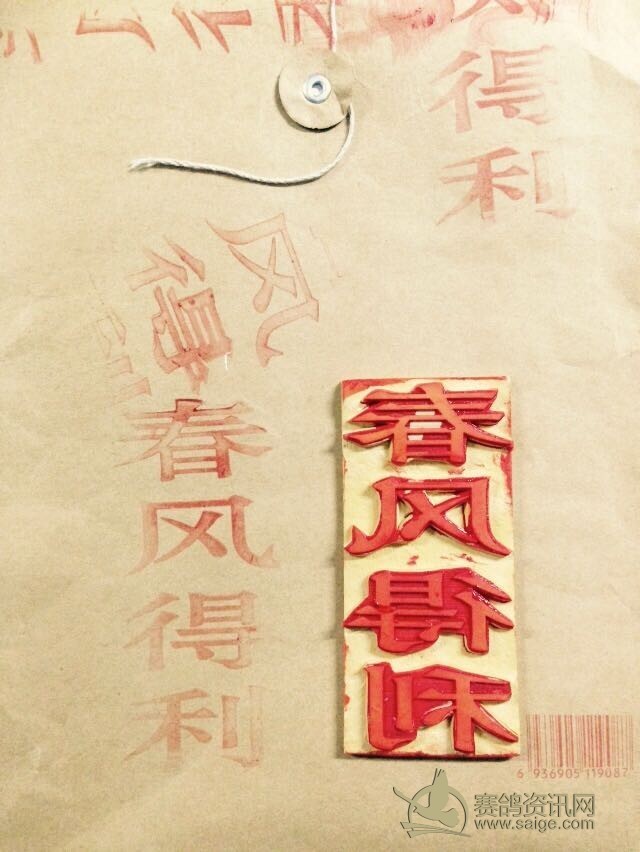 得
利
风
得
春
风
得
利
春
风
得
利
6 936905 119087
赛鸽资讯网
www.saige.com